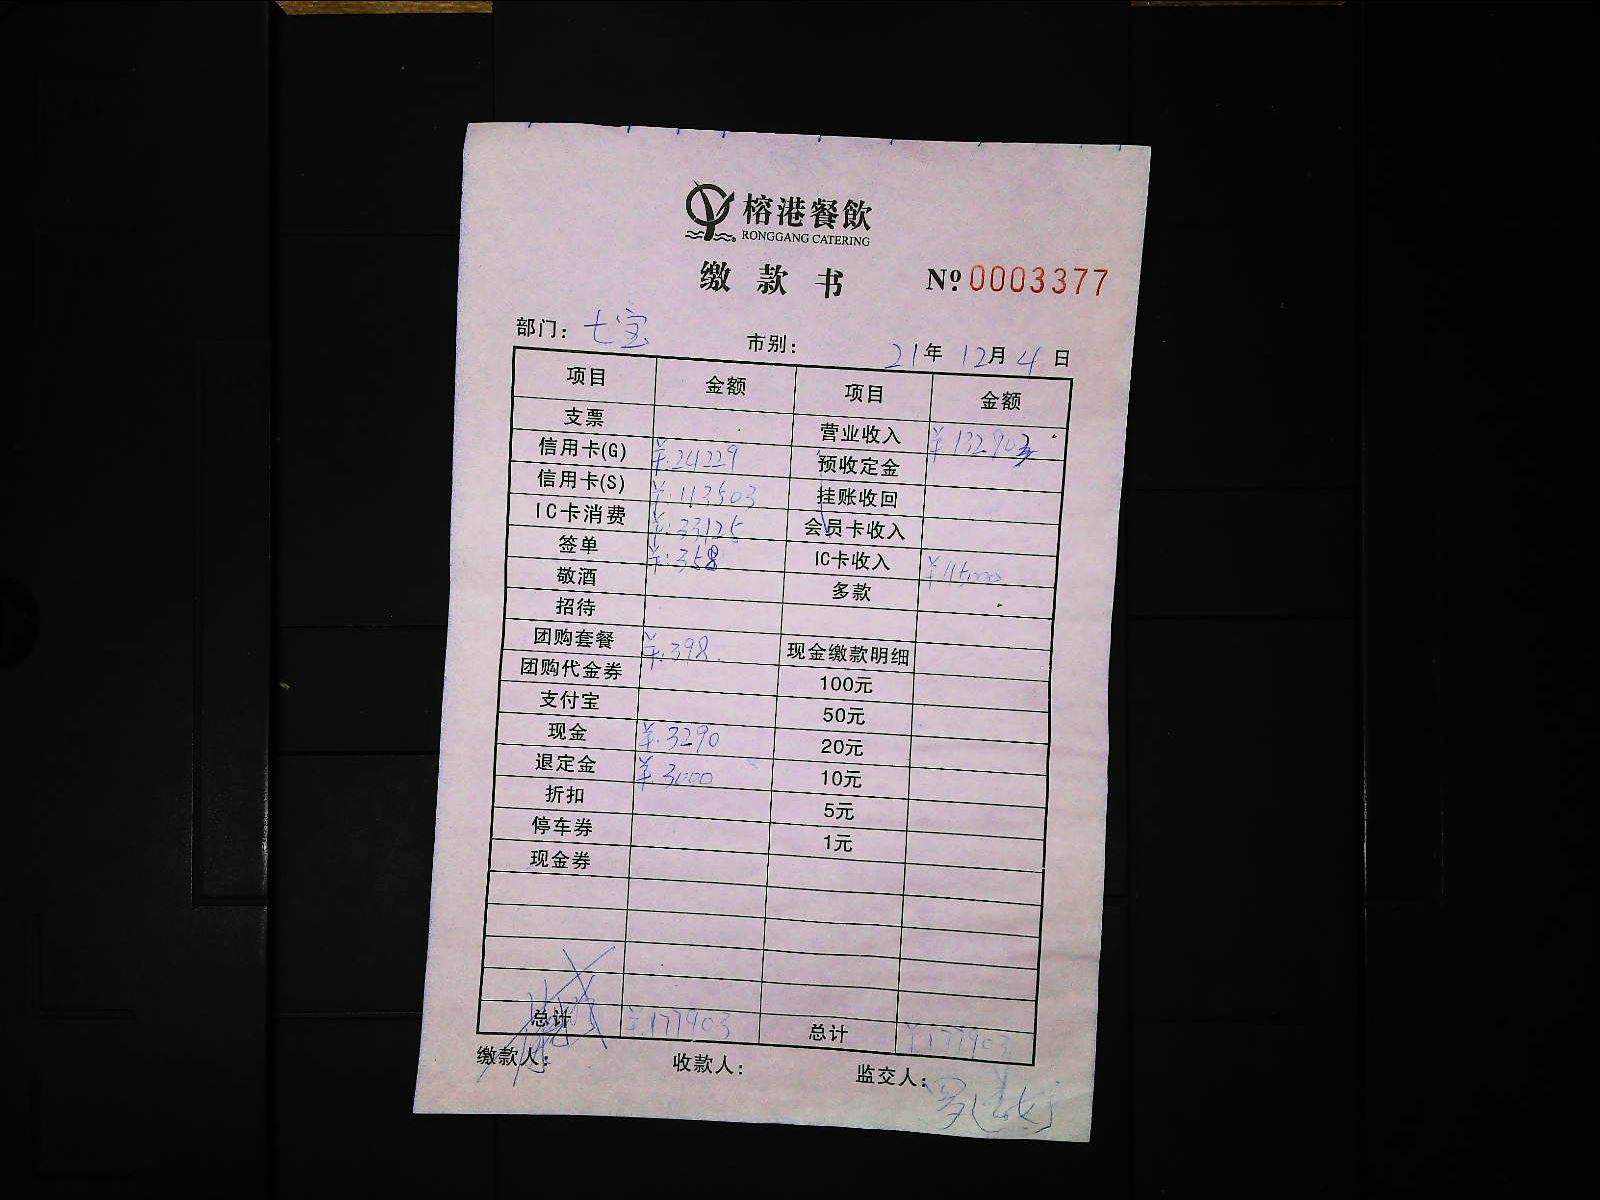 榕港餐飲
RONGGANG CATERING
缴款书 Nº 0003377
部门: 七宝 市别: 21年 12月 4日
项目 金额 项目 金额
支票 营业收入 ¥132903
信用卡(G) ¥24229 预收定金
信用卡(S) ¥113503 挂账收回
IC卡消费 ¥33125 会员卡收入
签单 ¥358 IC卡收入 ¥45000
敬酒 多款
招待
团购套餐 ¥398 现金缴款明细
团购代金券 100元
支付宝 50元
现金 ¥3290 20元
退定金 ¥3000 10元
折扣 5元
停车券 1元
现金券
总计 ¥177903 总计 ¥177903
缴款人: 收款人: 监交人: